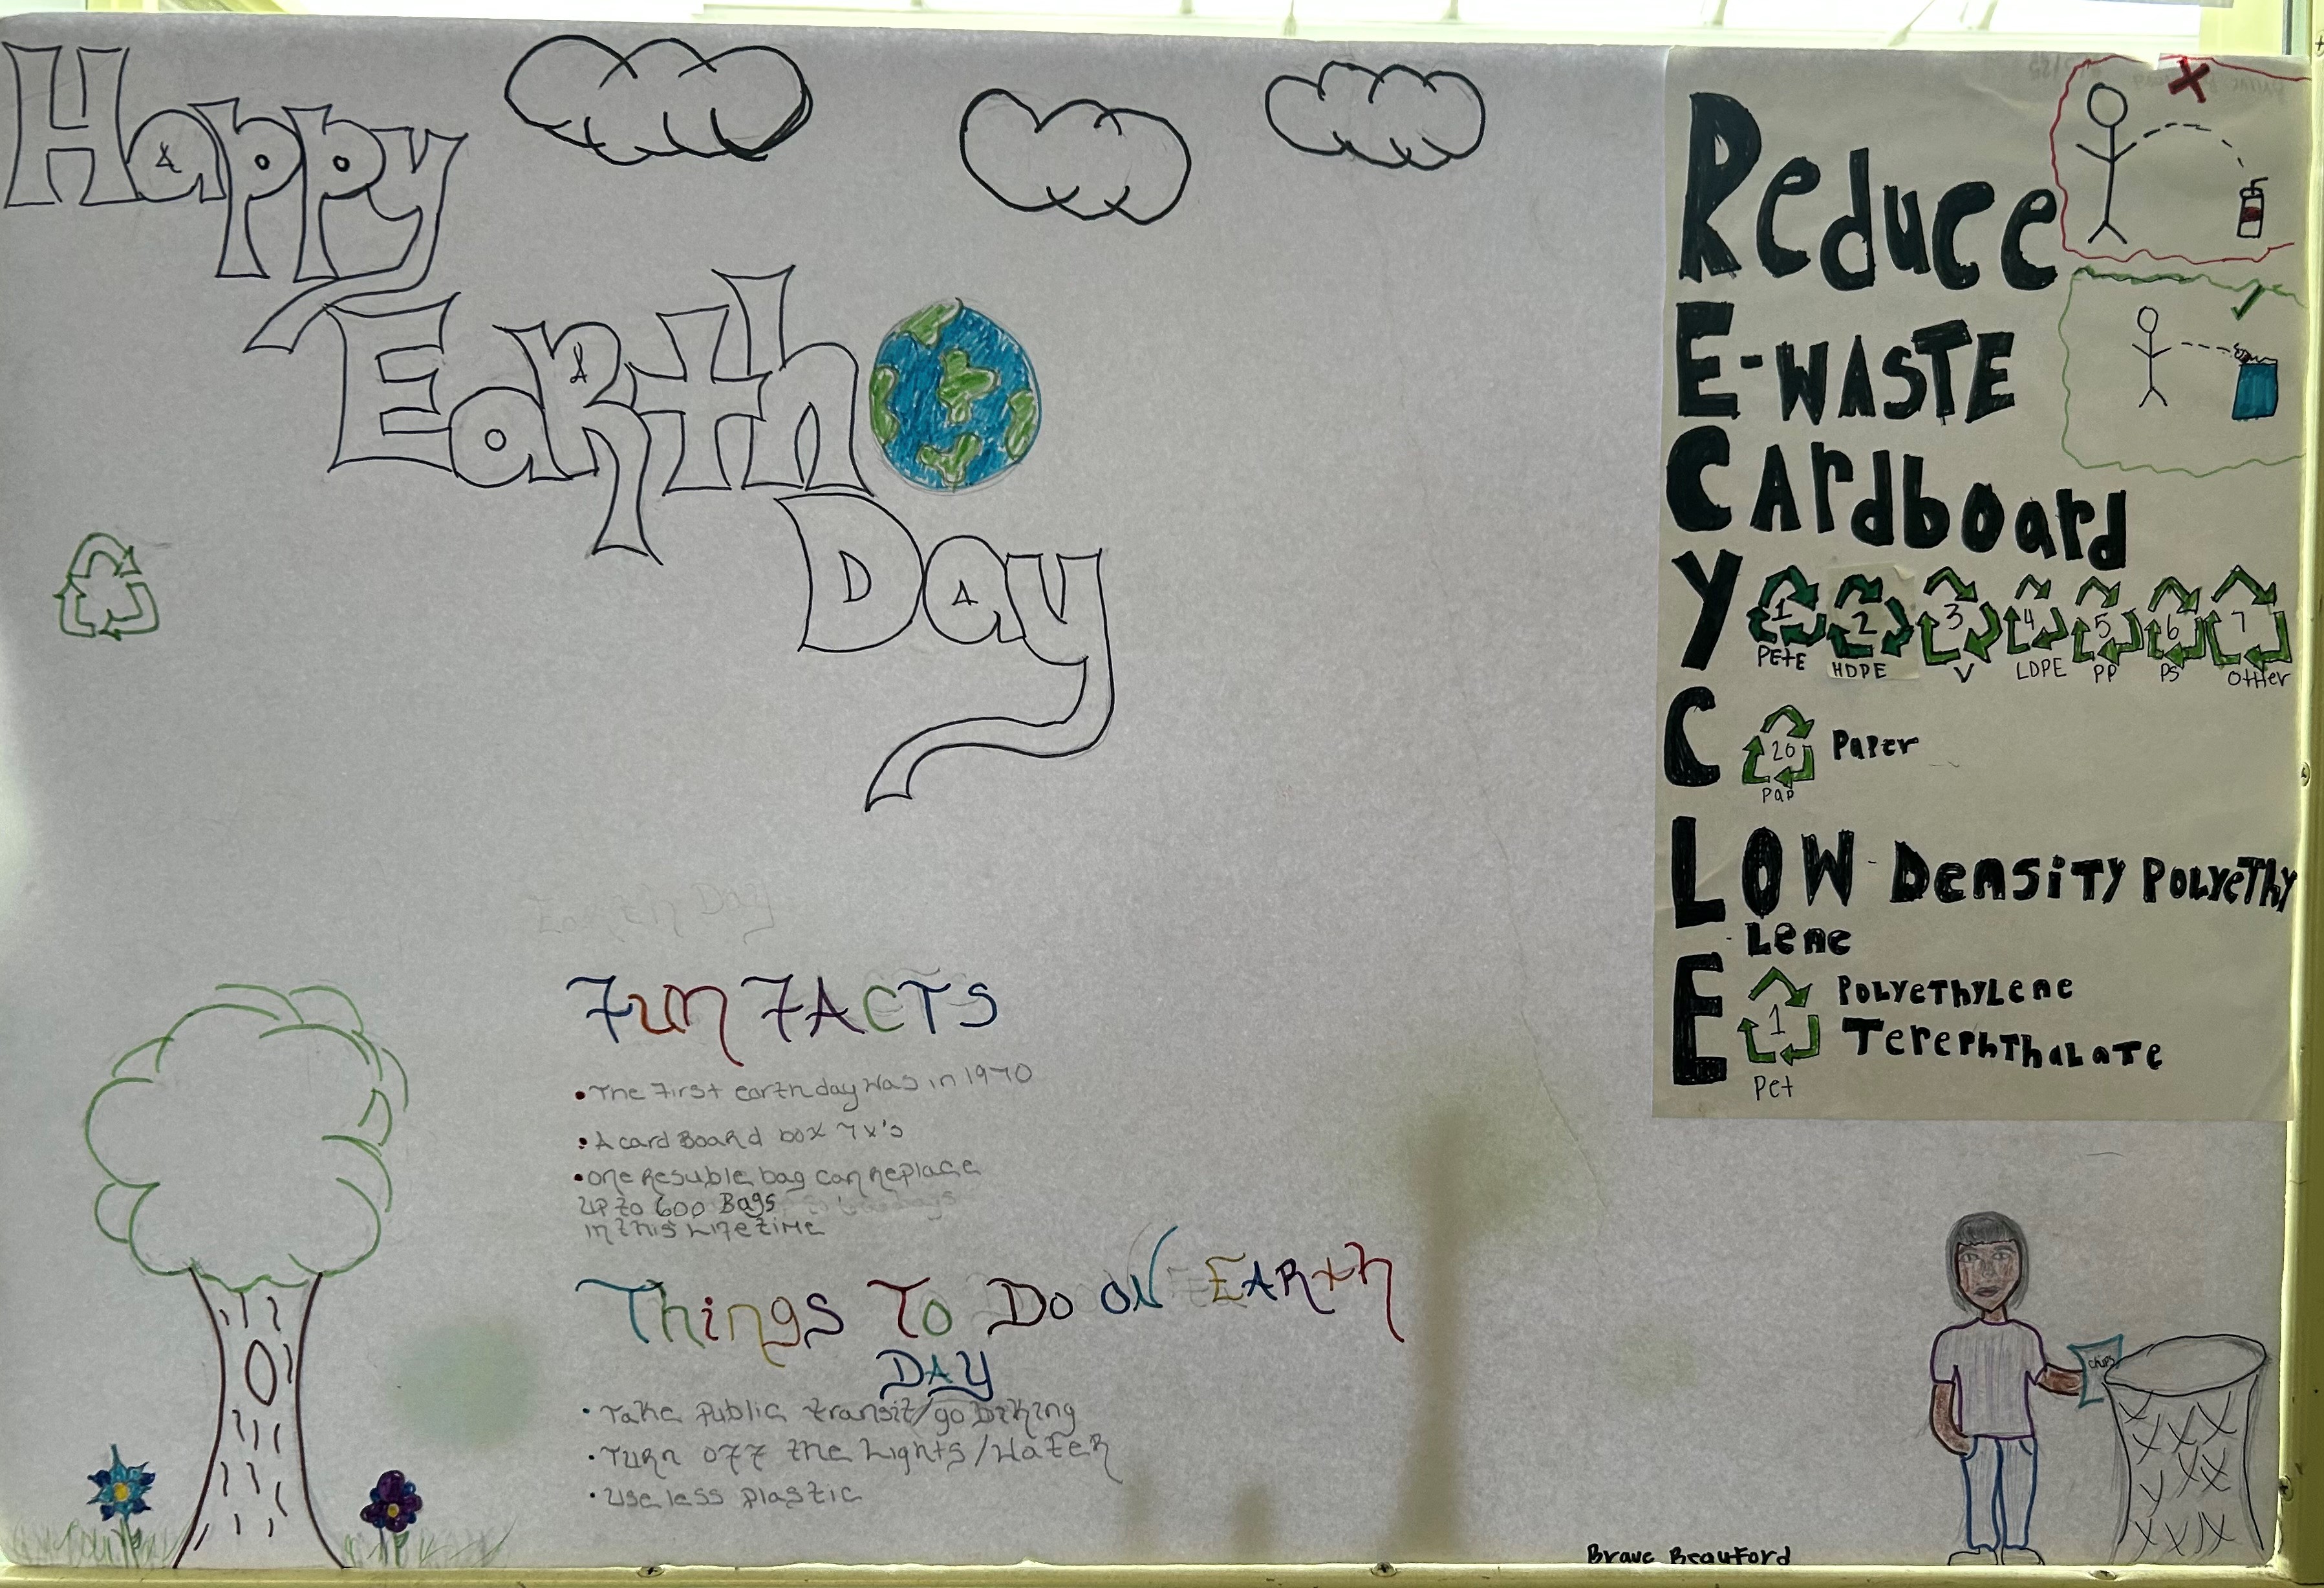 Happy
EaRth
Day
Earth Day
FUN FACTS
• The First earth day was in 1970
• A cardBoaRd box 7x's
• One Resuble bag can Replace
up to 600 Bags
in this Lifetime
Things To Do ON EARth
DAY
• Take public transit/go biking
• TuRn off the Lights/WaTER
• use less plastic
Reduce
E-WASTE
CArdboard
Y 1 2 3 4 5 6 7
PEtE HDPE V LDPE PP PS OtHer
C 20 Paper
Pap
LOW-Density Polyethy
Lene
E 1 Polyethylene
Terephthalate
Pet
chips
Brave Beauford